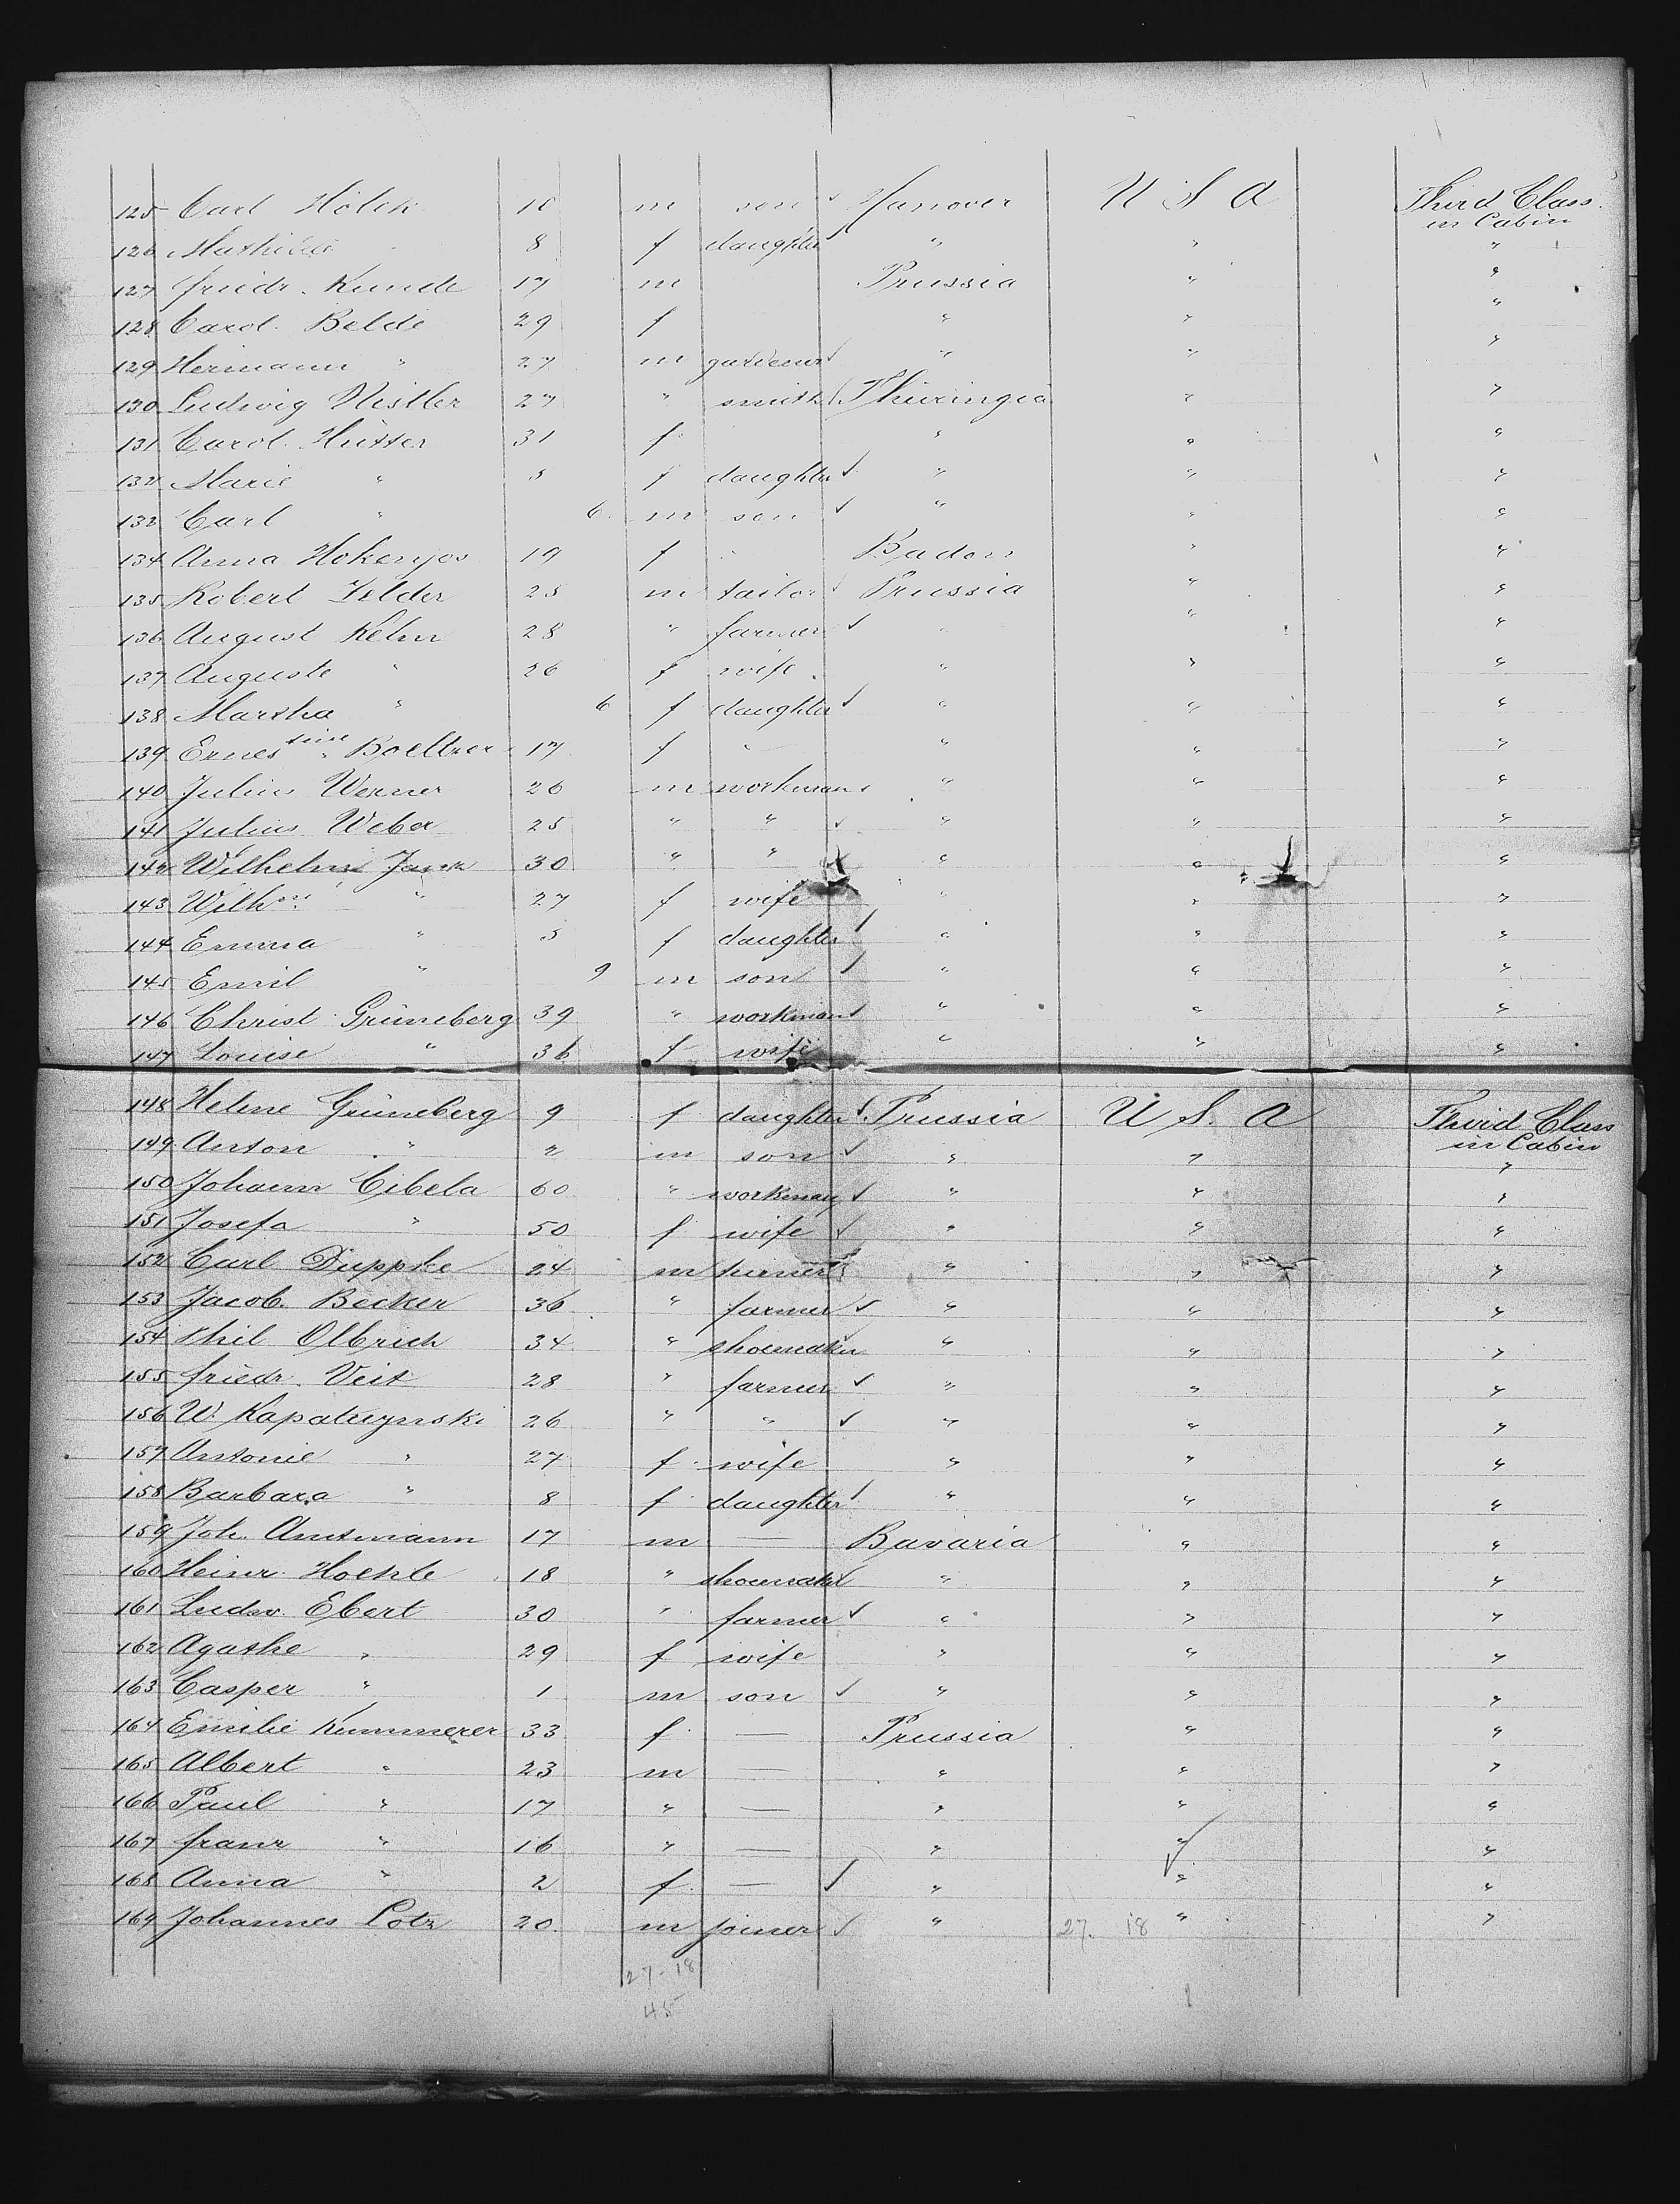 125 Carl Hölck 10 m son ✓ Hanover U S A Third Class in Cabin
126 Mathilde " 8 f daughter " " "
127 Friedr. Kunde 17 m Prussia " "
128 Carol. Belde 29 f " " "
129 Hermann " 27 m gardener ✓ " " "
130 Ludwig Nistler 27 " smith Thüringia " "
131 Carol. Hütter 31 f " " "
132 Marie " 5 f daughter ✓ " " "
133 Carl " 6 m son ✓ " " "
134 Anna Hokenjos 19 f Baden " "
135 Robert Felder 25 m tailor ✓ Prussia " "
136 August Kelm 28 " farmer ✓ " " "
137 Auguste " 26 f wife " " "
138 Martha " 6 f daughter ✓ " " "
139 Ernestine Boettner 17 f " " "
140 Julius Werner 26 m workman " " "
141 Julius Weber 25 " " ✓ " " "
142 Wilhelm Jank 30 " " ✓ " " "
143 Wilhme " 27 f wife " " "
144 Emma " 5 f daughter ✓ " " "
145 Emil " 9 m son ✓ " " "
146 Christ Grüneberg 39 " workman ✓ " " "
147 Louise " 36 f wife " " "
148 Helene Grüneberg 9 f daughter ✓ Prussia U S. A Third Class in Cabin
149 Anton " m son ✓ " " "
150 Johann Cibela 60 " workman ✓ " " "
151 Josefa " 50 f wife ✓ " " "
152 Carl Duppke 24 m turner " " "
153 Jacob. Becker 36 " farmer ✓ " " "
154 Phil Olbrich 34 " shoemaker " " "
155 Friedr. Veit 28 " farmer ✓ " " "
156 W. 26 " " ✓ " " "
157 Antonie " 27 f wife " " "
158 Barbara " 8 f daughter ✓ " " "
159 Joh. Amtmann 17 m — Bavaria " "
160 Heinr. Hoehle 18 " shoemaker ✓ " " "
161 Ludw. Ebert 30 " farmer ✓ " " "
162 Agathe " 29 f wife " " "
163 Casper " 1 m son ✓ " " "
164 Emilie Kummerer 33 f — Prussia " "
165 Albert " 23 m — " " "
166 Paul " 17 " — " " "
167 Franz " 16 " — " " "
168 Anna " 2 f — ✓ " " "
169 Johannes Lotz 20 m joiner ✓ " " "
27. 18
27-18
45